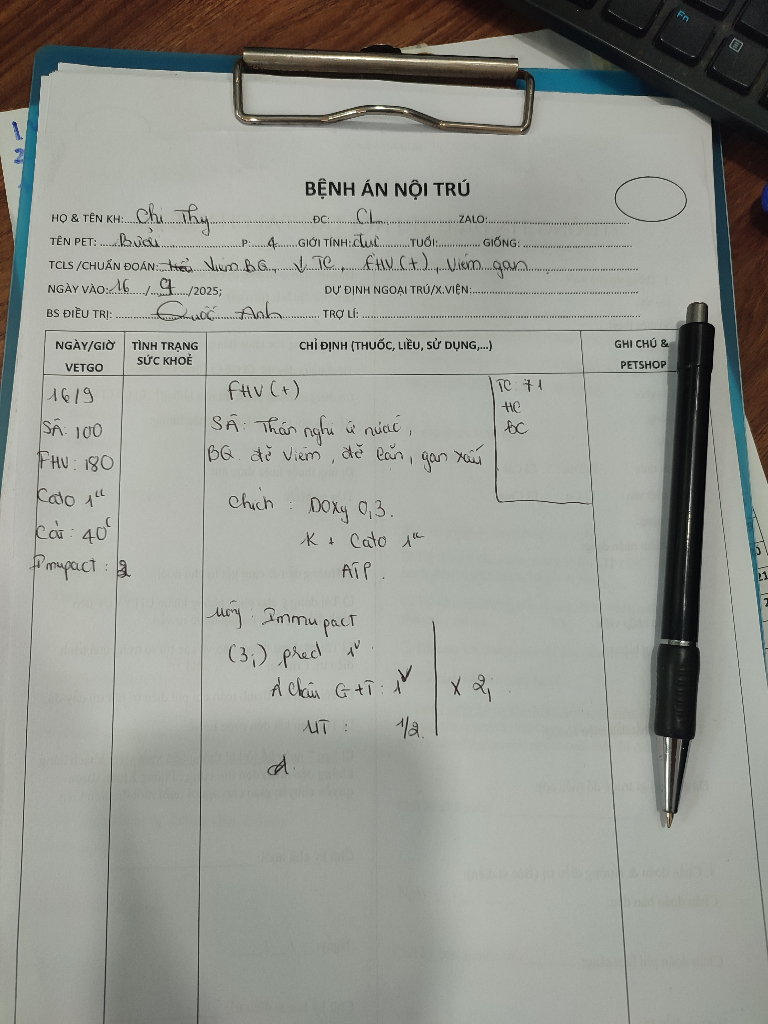 BỆNH ÁN NỘI TRÚ
HỌ & TÊN KH: Chị Thy ĐC: CL ZALO:
TÊN PET: Bưởi P: 4 GIỚI TÍNH: đực TUỔI: GIỐNG:
TCLS /CHUẨN ĐOÁN: Viêm BQ, V TC, FHV(+), Viêm gan
NGÀY VÀO: 16 / 9 /2025; DỰ ĐỊNH NGOẠI TRÚ/X.VIỆN:
BS ĐIỀU TRỊ: Quốc Anh TRỢ LÍ:
NGÀY/GIỜ VETGO
TÌNH TRẠNG SỨC KHOẺ
CHỈ ĐỊNH (THUỐC, LIỀU, SỬ DỤNG,...)
GHI CHÚ & PETSHOP
16/9
SÂ: 100
FHV: 180
Cato 1
: 40
Imupact : 2
FHV (+)
SÂ: Thận nghi ứ nước,
BQ viêm, cặn, gan xấu
TC: 71
HC
BC
Chích : Doxy 0,3.
K + Cato 1
ATP.
Uống : Immupact
pred 1
G+T: 1
x 2
MT : 1/2
Fn